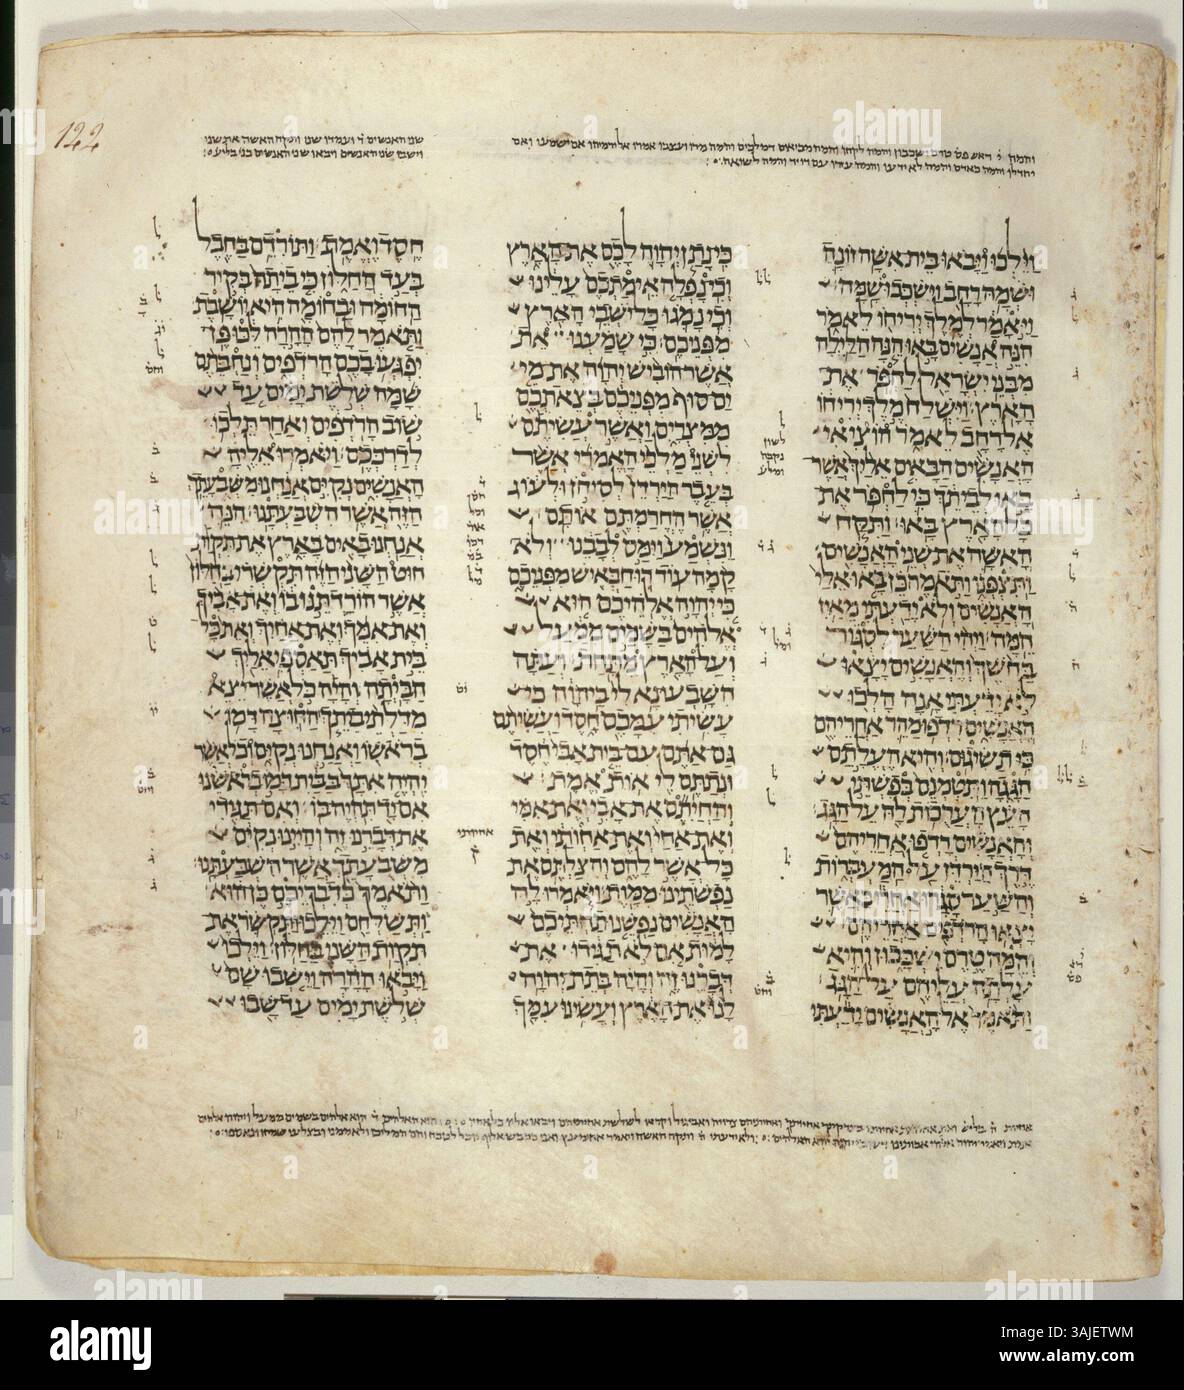 122
והמה י֗ ראש פס֗ טרם ישכבון והמה לקחו והמה מביאים דמלכים והמה מרו ועצבו אמרו אלהימהו אם ישמעו ואם
יחדלו והמה כאדם והמה לא ידעו והמה עזרו עם דויד והמה לשואה
שני האנשים ד֗ ועמדו שני ותקח האשה את שני
וישבו שני האנשים ויבאו שני האנשים בני בליעל
וילכו ויבאו בית אשה זונה
ושמה רחב וישכבו שמה
ויאמר למלך יריחו לאמר
הנה אנשים באו הנה הלילה
מבני ישראל לחפר את
הארץ וישלח מלך יריחו
אל רחב לאמר הוציאי
האנשים הבאים אליך אשר
באו לביתך כי לחפר את
כל הארץ באו ותקח
האשה את שני האנשים
ותצפנו ותאמר כן באו אלי
האנשים ולא ידעתי מאין
המה ויהי השער לסגור
בחשך והאנשים יצאו
לא ידעתי אנה הלכו
האנשים רדפו מהר אחריהם
כי תשיגום והיא העלתם
הגגה ותטמנם בפשתי
העץ הערכות לה על הגג
והאנשים רדפו אחריהם
דרך הירדן על המעברות
והשער סגרו אחרי כאשר
יצאו הרדפים אחריהם
והמה טרם ישכבון והיא
עלתה עליהם על הגג
ותאמר אל האנשים ידעתי
כי נתן יהוה לכם את הארץ
וכי נפלה אימתכם עלינו
וכי נמגו כל ישבי הארץ
מפניכם כי שמענו את
אשר הוביש יהוה את מי
ים סוף מפניכם בצאתכם
ממצרים ואשר עשיתם
לשני מלכי האמרי אשר
בעבר הירדן לסיחן ולעוג
אשר החרמתם אותם
ונשמע וימס לבבנו ולא
קמה עוד רוח באיש מפניכם
כי יהוה אלהיכם הוא
אלהים בשמים ממעל
ועל הארץ מתחת ועתה
השבעו נא לי ביהוה כי
עשיתי עמכם חסד ועשיתם
גם אתם עם בית אבי חסד
ונתתם לי אות אמת
והחיתם את אבי ואת אמי
ואת אחי ואת אחותי ואת
כל אשר להם והצלתם את
נפשתינו ממות ויאמרו לה
האנשים נפשנו תחתיכם
למות אם לא תגידו את
דברנו זה והיה בתת יהוה
לנו את הארץ ועשינו עמך
חסד ואמת ותורדם בחבל
בעד החלון כי ביתה בקיר
החומה ובחומה היא יושבת
ותאמר להם ההרה לכו פן
יפגעו בכם הרדפים ונחבתם
שמה שלשת ימים עד
שוב הרדפים ואחר תלכו
לדרככם ויאמרו אליה
האנשים נקים אנחנו משבעתך
הזה אשר השבעתנו הנה
אנחנו באים בארץ את תקות
חוט השני הזה תקשרי בחלון
אשר הורדתנו בו ואת אביך
ואת אמך ואת אחיך ואת כל
בית אביך תאספי אליך
הביתה והיה כל אשר יצא
מדלתי ביתך החוצה דמו
בראשו ואנחנו נקים וכל אשר
יהיה אתך בבית דמו בראשנו
אם יד תהיה בו ואם תגידי
את דברנו זה והיינו נקים
משבעתך אשר השבעתנו
ותאמר כדבריכם כן הוא
ותשלחם וילכו ותקשר את
תקות השני בחלון וילכו
ויבאו ההרה וישבו שם
שלשת ימים עד שבו
לשון
נקבה
ומלע
אחיותי
ק֗
alamy
2AJETWM
www.alamy.com